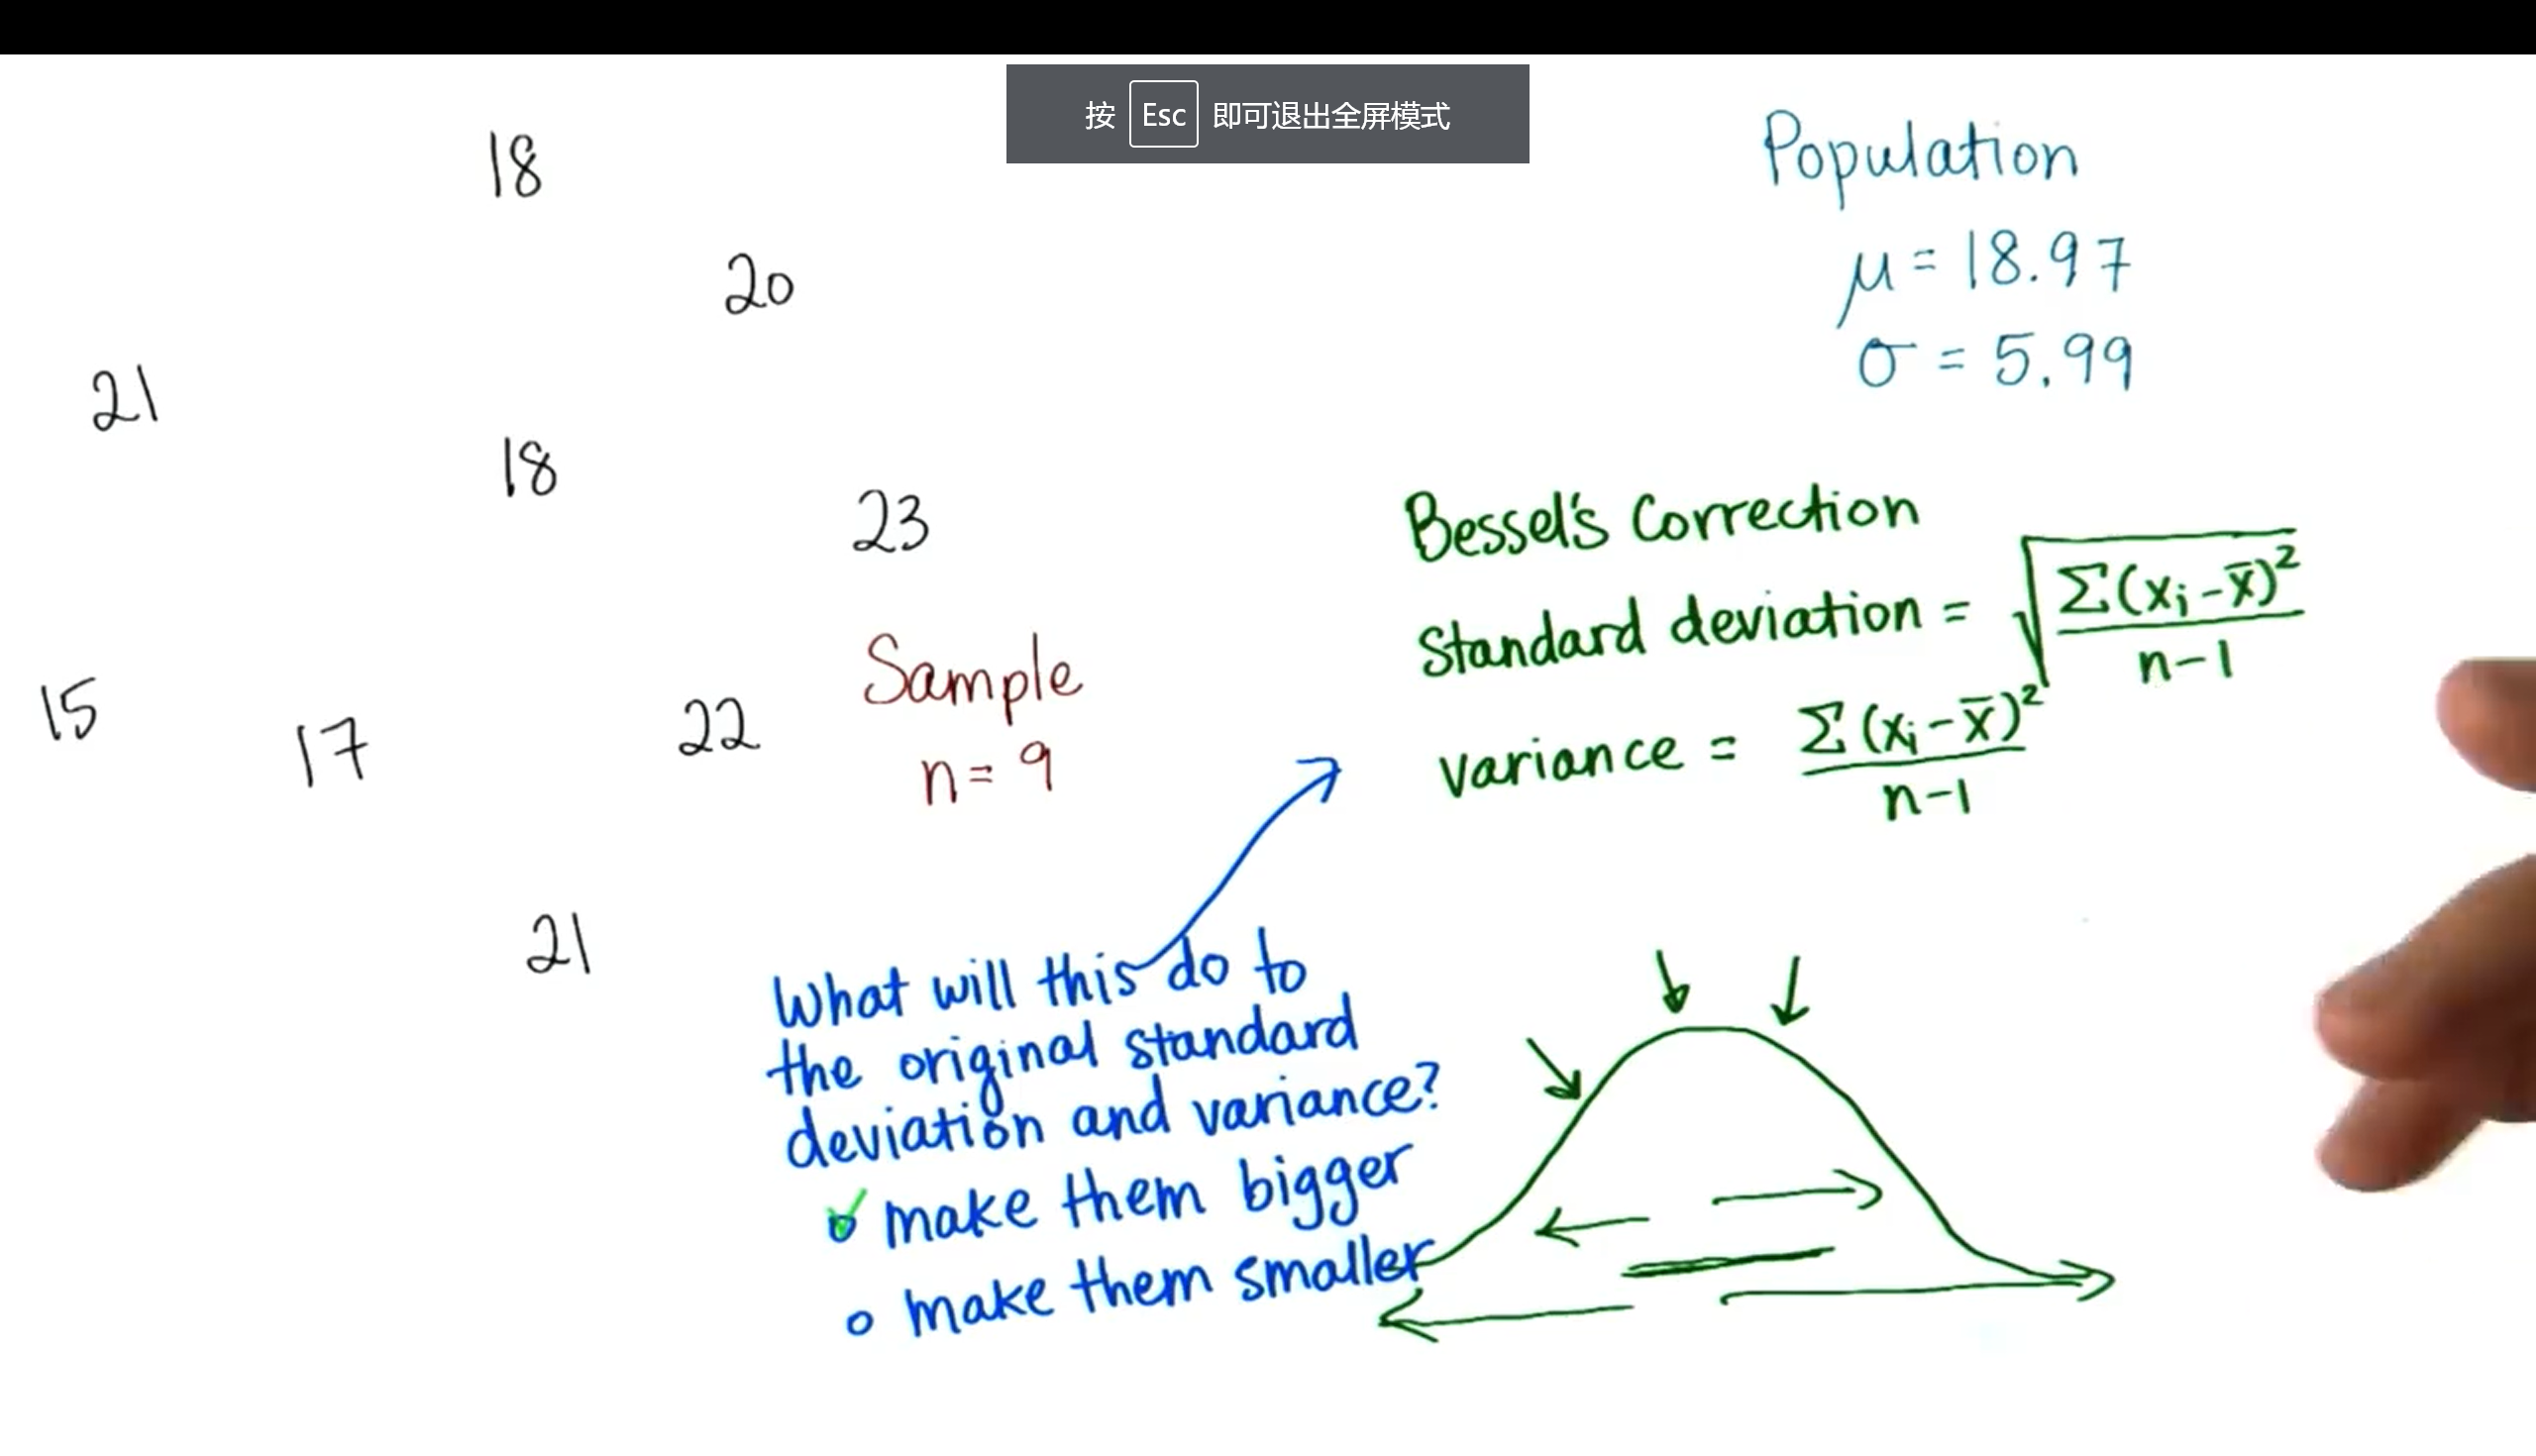 按 Esc 即可退出全屏模式
18
20
21
18
23
15
17
22
21
Sample
n = 9
Population
μ = 18.97
σ = 5.99
Bessel's Correction
Standard deviation = √Σ(xᵢ-x̄)²/n-1
variance = Σ(xᵢ-x̄)²/n-1
What will this do to
the original standard
deviation and variance?
make them bigger
make them smaller